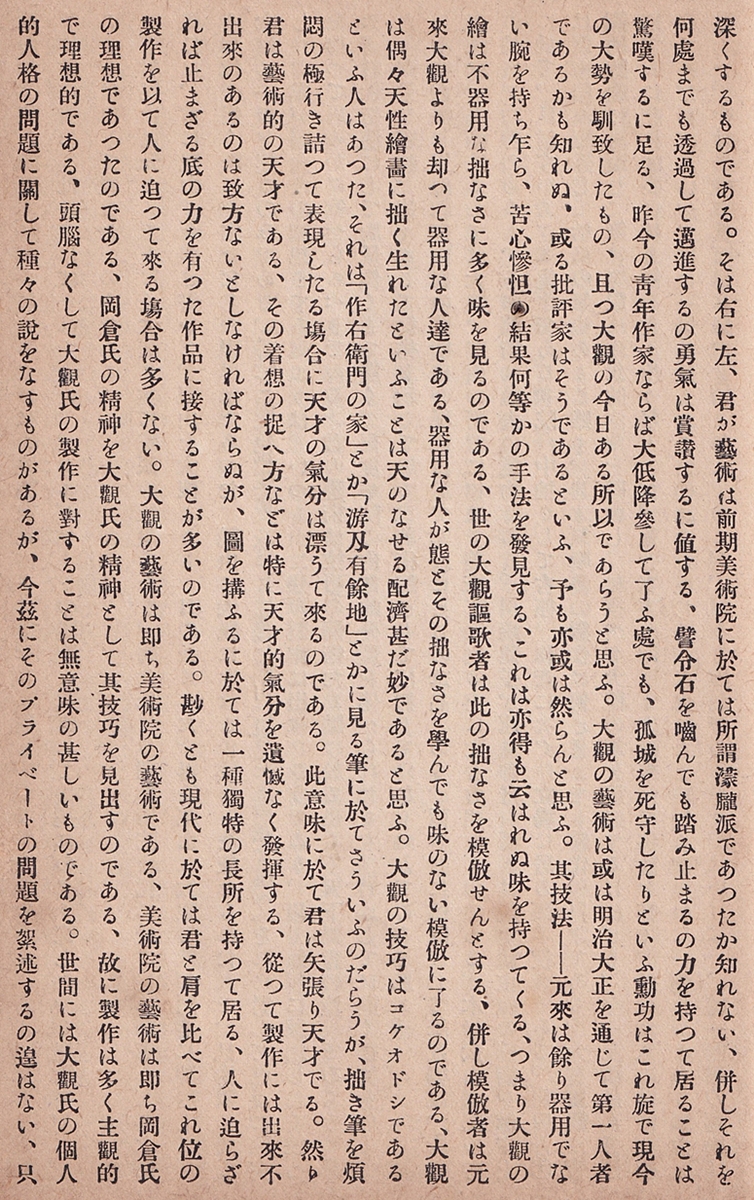 深くするものである。そは右に左、君が藝術は前期美術院に於ては所謂濛朧派であつたか知れない、併しそれを
何處までも透過して邁進するの勇氣は賞讃するに値する、譬令石を嚙んでも踏み止まるの力を持つて居ることは
驚嘆するに足る、昨今の靑年作家ならば大低降參して了ふ處でも、孤城を死守したりといふ勳功はこれ旋で現今
の大勢を馴致したもの、且つ大觀の今日ある所以であらうと思ふ。大觀の藝術は或は明治大正を通じて第一人者
であるかも知れぬ、或る批評家はそうであるといふ、予も亦或は然らんと思ふ。其技法――元來は餘り器用でな
い腕を持ち乍ら、苦心慘怛の結果何等かの手法を發見する、これは亦得も云はれぬ味を持つてくる、つまり大觀の
繪は不器用な拙なさに多く味を見るのである、世の大觀謳歌者は此の拙なさを模倣せんとする、併し模倣者は元
來大觀よりも却つて器用な人達である、器用な人が態とその拙なさを學んでも味のない模倣に了るのである、大觀
は偶々天性繪畫に拙く生れたといふことは天のなせる配濟甚だ妙であると思ふ。大觀の技巧はコケオドシである
といふ人はあつた、それは「作右衛門の家」とか「游刄有餘地」とかに見る筆に於てさういふのだらうが、拙き筆を煩
悶の極行き詰つて表現したる塲合に天才の氣分は漂うて來るのである。此意味に於て君は矢張り天才でる。然り
君は藝術的の天才である、その着想の捉へ方などは特に天才的氣分を遺憾なく發揮する、從つて製作には出來不
出來のあるのは致方ないとしなければならぬが、圖を搆ふるに於ては一種獨特の長所を持つて居る、人に迫らざ
れば止まざる底の力を有つた作品に接することが多いのである。尠くとも現代に於ては君と肩を比べてこれ位の
製作を以て人に迫つて來る塲合は多くない。大觀の藝術は即ち美術院の藝術である、美術院の藝術は即ち岡倉氏
の理想であつたのである、岡倉氏の精神を大觀氏の精神として其技巧を見出すのである、故に製作は多く主觀的
で理想的である、頭腦なくして大觀氏の製作に對することは無意味の甚しいものである。世間には大觀氏の個人
的人格の問題に關して種々の說をなすものがあるが、今茲にそのプライベートの問題を絮述するの遑はない、只